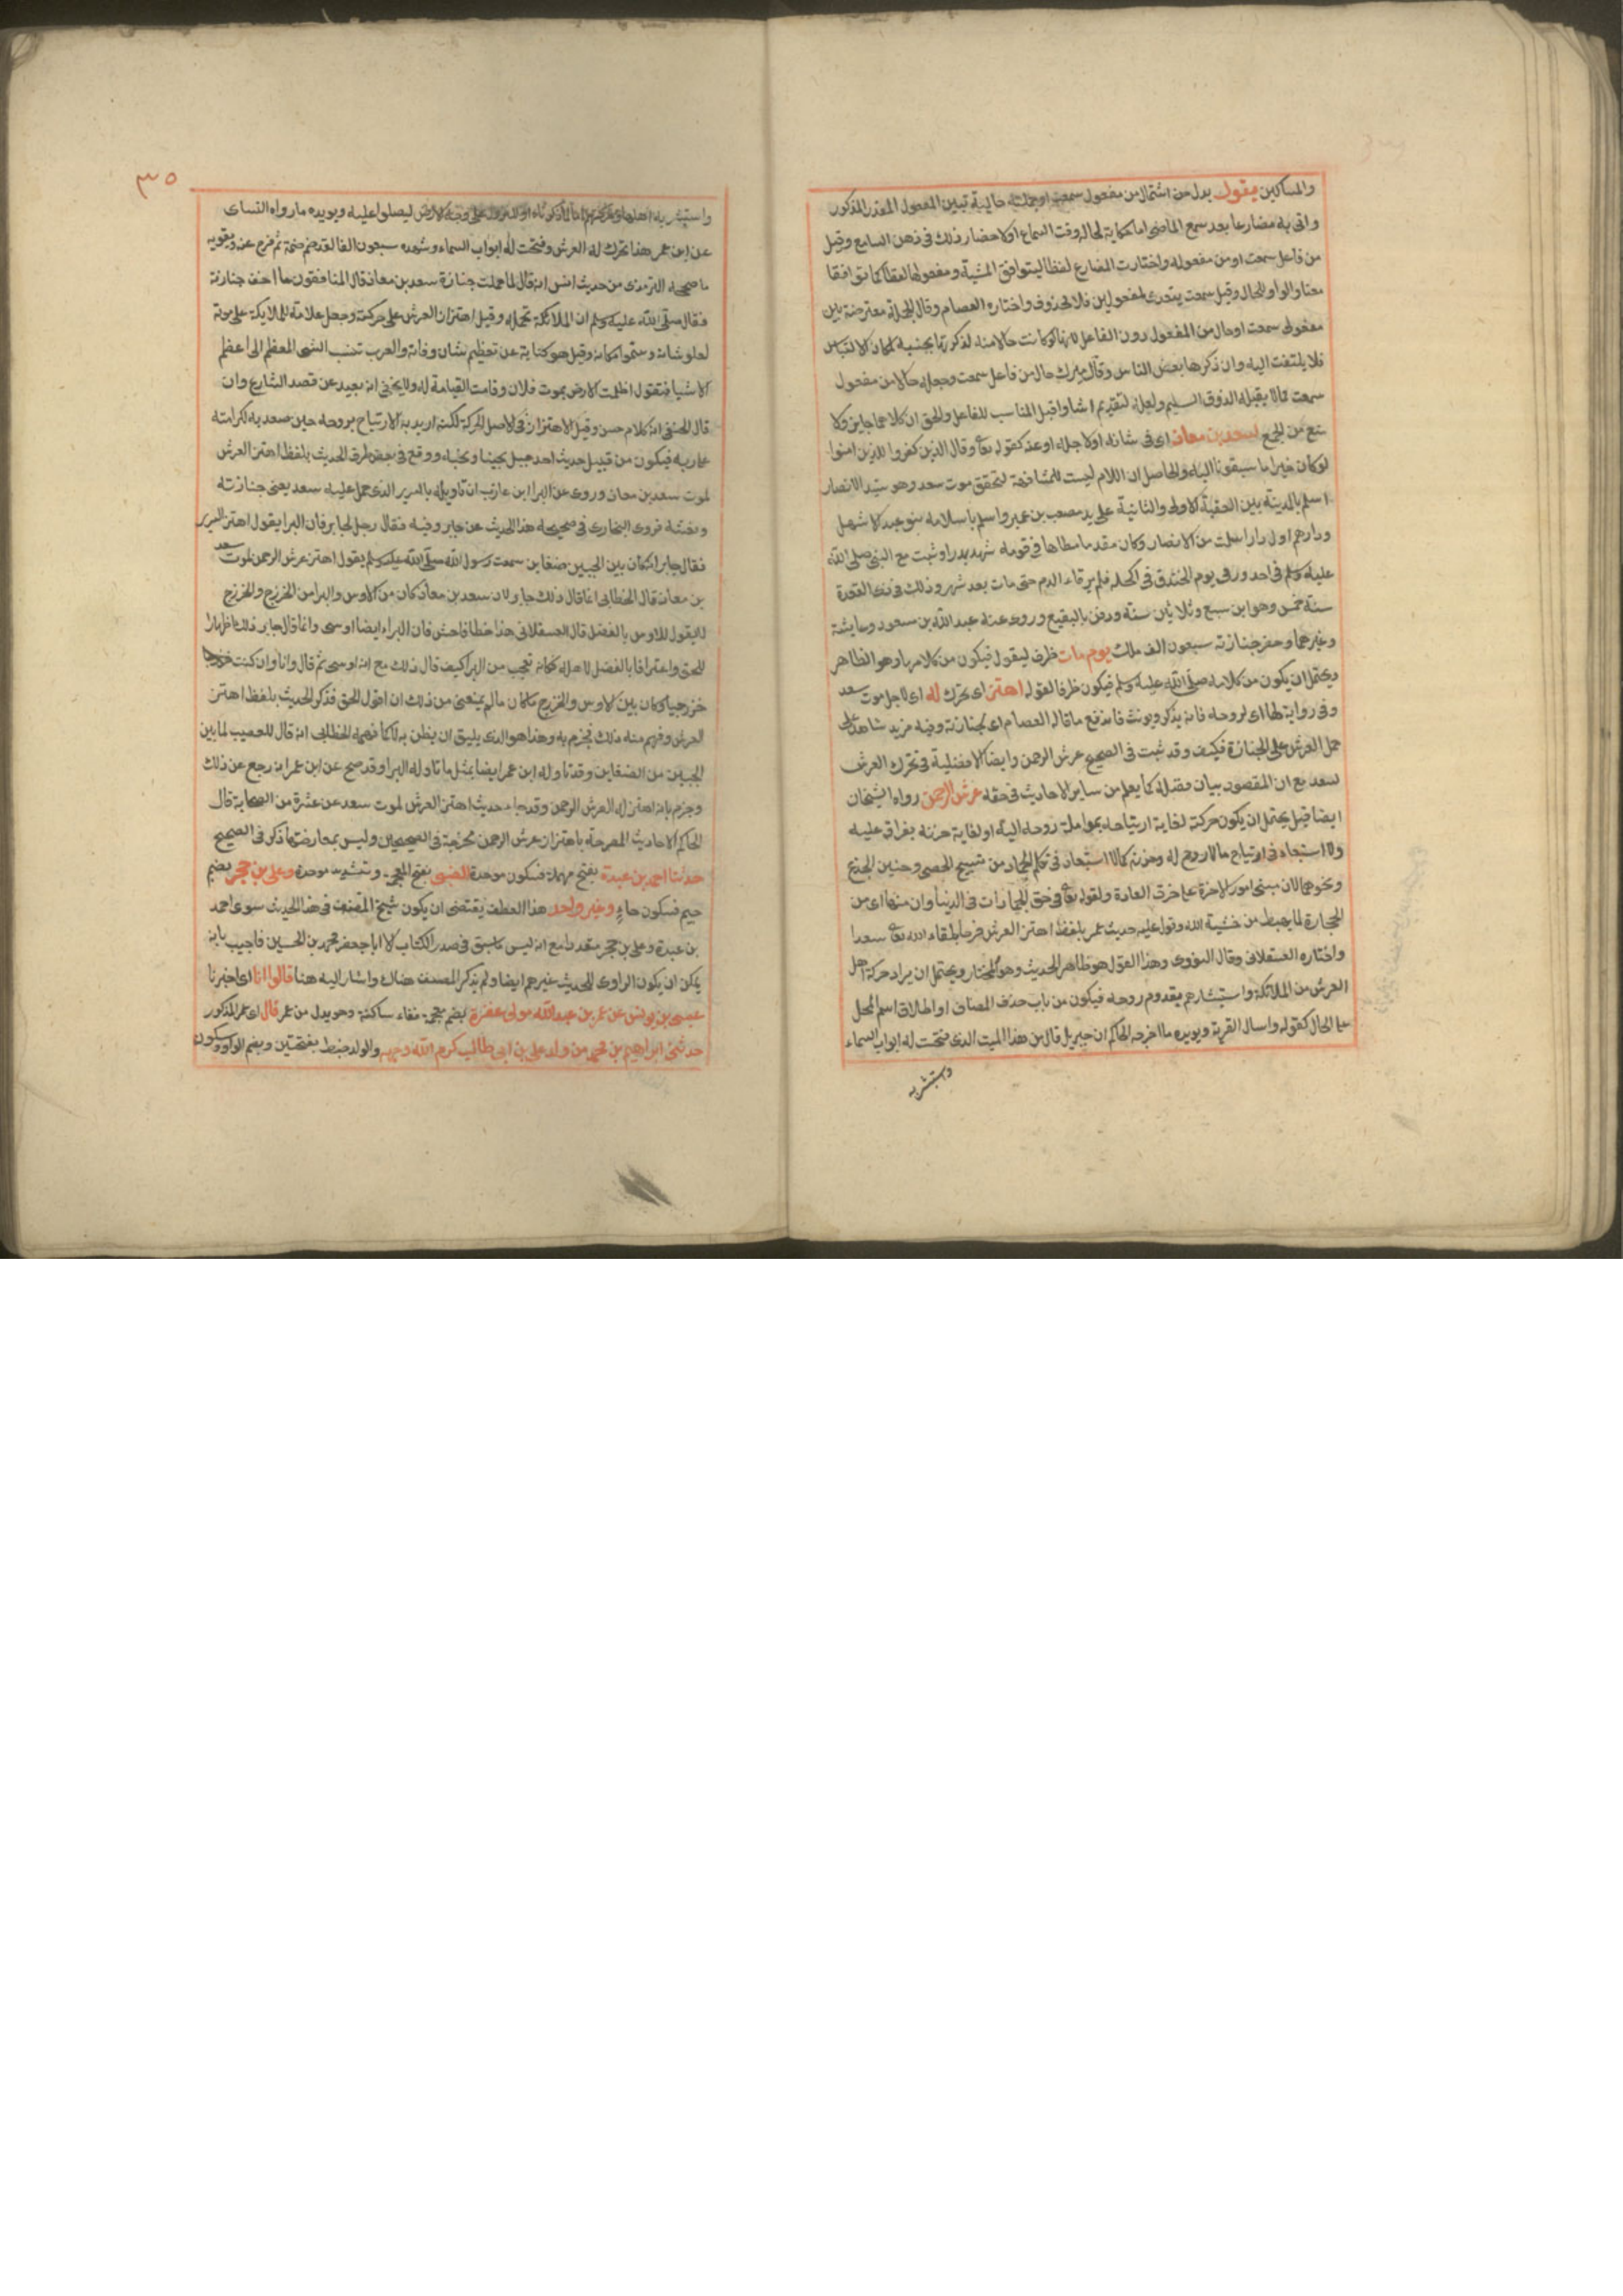 والمساكين يقول بدل من اشتمال من مفعول سمعت او جملة حالية تبين المفعول المقدر المذكور
واتى به مضارعا بعد سمع الماضى اما حكاية لحاله وقت السماع او لاحضار ذلك فى ذهن السامع وقيل
من فاعل سمعت او من مفعوله واختارت المضارع لفظا ليتوافق المشية ومفعولها لفظا كما توافقا
معنا والواو للحال وقيل سمعت يتعدى لمفعولين فلا محذوف واختاره العصام وقال الجملة معترضة بين
مفعولى سمعت او حال من المفعول دون الفاعل لانها لو كانت حالا منه لذكرتها بجنبه لمكان الالتباس
فلا يلتفت اليه وان ذكرها بعض الناس وقال ميرك حال من فاعل سمعت وجعله حالا من مفعول
سمعت مما لا يقبله الذوق السليم ولعله لتقديم اشاوا قبل المناسب للفاعل والحق ان كلاهما جايز ولا
منع من الجمع لسعد بن معاذ اى فى شانه او لاجله او عنه كقوله تعا وقال الذين كفروا للذين امنوا
لو كان خيرا ما سبقونا اليه والحاصل ان اللام ليست للمشافهة لتحقق موت سعد وهو سيد الانصار
اسلم بالمدينة بين العقبة الاولى والثانية على يد مصعب بن عمير واسلم باسلامه بنو عبد الاشهل
ودارهم اول دار اسلمت من الانصار وكان مقدما مطاعا فى قومه شهد بدرا وثبت مع النبى صلى الله
عليه وسلم فى احد ورمى يوم الخندق فى اكحله فلم يرقاء الدم حتى مات بعد شهر وذلك فى ذى القعدة
سنة خمس وهو ابن سبع وثلاثين سنة ودفن بالبقيع وروى عنه عبد الله بن مسعود وعايشة
وغيرهما وحضر جنازته سبعون الف ملك يوم مات ظرف ليقول فيكون من كلامها وهو الظاهر
ويحتمل ان يكون من كلامه صلى الله عليه وسلم فيكون ظرفا لقوله اهتز اى تحرك له اى لاجل موت سعد
وفى رواية لها اى لروحه فانه يذكر ويونث فاندفع ما قاله العصام اى لجنازته وفيه مزيد شاهد على
حمل العرش على الجنازة فكيف وقد ثبت فى الصحيح عرش الرحمن وايضا لا افضلية فى تحرك العرش
لسعد مع ان المقصود بيان فضله كما يعلم من ساير الاحاديث فى حقه عرش الرحمن رواه الشيخان
ايضا قيل يحتمل ان يكون حركته لغاية ارتياحه بمواصلة روحه اليه او لغاية حزنه بفراق عليه
ولا استبعاد فى ارتياح ما لا روح له وحزنه كما لا استبعاد فى تكلم الجماد من تسبيح الحصى وحنين الجذع
ونحوهما لان مبنى امور الاخرة على خرق العادة ولقوله تعا فى حق الجمادات فى الدنيا وان منها اى من
الحجارة لما يهبط من خشية الله وتوا عليه حديث عمر بلفظ اهتز العرش فرحا بلقاء الله تعا سعدا
واختاره العسقلانى وقال النووى وهذا القول هو ظاهر الحديث وهو المختار ويحتمل ان يراد حركة اهل
العرش من الملائكة واستبشارهم بقدوم روحه فيكون من باب حذف المضاف او اطلاق اسم المحل
على الحال كقوله واسال القرية ويويده ما اخرجه الحاكم ان جبريل قال من هذا الميت الذى فتحت له ابواب السماء
واستبشر به
٣٥
واستبشر به اهلها على وجه الارض ليصلوا عليه ويويده ما رواه النساى
عن ابن عمر هذا تحرك له العرش وفتحت له ابواب السماء وشهده سبعون الفا لقد ضم ضمة ثم فرج عنه ويقويه
ما صححه الترمذى من حديث انس انه قال لما حملت جنازة سعد بن معاذ قال المنافقون ما اخف جنازته
فقال صلى الله عليه وسلم ان الملائكة تحمله وقيل اهتزاز العرش على حركته وجعل علامة للملايكة على موته
لعلو شانه وسموا مكانه وقيل هو كناية عن تعظيم شان وفاته والعرب تنسب الشى المعظم الى اعظم
الاشيا فتقول اظلمت الارض بموت فلان وقامت القيامة له ولا يخفى انه بعيد عن قصد الشارع وان
قال الحنفى انه كلام حسن وقيل الاهتزاز فى الاصل الحركة لكنه اريد به الارتياح بروحه حين صعد به لكرامته
على ربه فيكون من قبيل حديث احد جبل يحبنا ونحبه ووقع فى بعض طرق الحديث بلفظ اهتز العرش
لموت سعد بن معاذ وروى عن البرا ابن عازب ان تاويله بالسرير الذى حمل عليه سعد يعنى جنازته
ونعشه فروى البخارى فى صحيحه هذا الحديث عن جابر وفيه فقال رجل لجابر فان البرا يقول اهتز السرير
فقال جابر انه كان بين الحيين ضغاين سمعت رسول الله صلى الله عليه وسلم يقول اهتز عرش الرحمن لموت سعد
بن معاذ قال الخطابى انما قال ذلك جابر لان سعد بن معاذ كان من الاوس والبرا من الخزرج والخزرج
لا يقول للاوس بالفضل قال العسقلانى هذا خطا فاحش فان البراء ايضا اوسى وانما قال جابر ذلك اظهارا
للحق واعترافا بالفضل لاهله فكانه تعجب من البرا كيف قال ذلك مع انه اوسى ثم قال وانا وان كنت خزرجيا
خزرجيا وكان بين الاوس والخزرج ما كان ما لم يمنعنى من ذلك ان اقول الحق فذكر الحديث بلفظ اهتز
العرش وفهم منه ذلك فجزم به وهذا هو الذى يليق ان يظن به لا كما فهمه الخطابى انه قال للعصب لما بين
الحيين من الضغاين وقد تاوله ابن عمر ايضا بمثل ما تاوله البرا وقد صح عن ابن عمر انه رجع عن ذلك
وجزم بانه اهتز له العرش الرحمن وقد جاء حديث اهتز العرش لموت سعد عن عشرة من الصحابة قال
الحاكم الاحاديث المصرحة باهتزاز عرش الرحمن مخرجة فى الصحيحين وليس بمعارضتها ذكر فى الصحيح
حدثنا احمد بن عبدة بفتح مهملة فسكون موحدة الضبى بفتح المعجمة وتشديد موحدة وعلى بن حجر بضم
جيم فسكون حاء وغير واحد هذا العطف يقتضى ان يكون شيخ المصنف فى هذا الحديث سوى احمد
بن عبدة وعلى بن حجر متعددا مع انه ليس كما سبق فى صدر الكتاب الا ابا جعفر محمد بن الحسين فاجيب بانه
يمكن ان يكون الراوى للحديث غيرهم ايضا ولم يذكر المصنف هناك واشار اليه هنا قالوا انا اى اخبرنا
عيسى بن يونس عن عمر بن عبد الله مولى غفرة بضم معجمة ففاء ساكنة وهو بدل من عمر قال اى عمر المذكور
حدثنى ابراهيم بن محمد من ولد على بن ابى طالب كرم الله وجهه والولد ضبط بفتحتين وبضم الواو وسكون